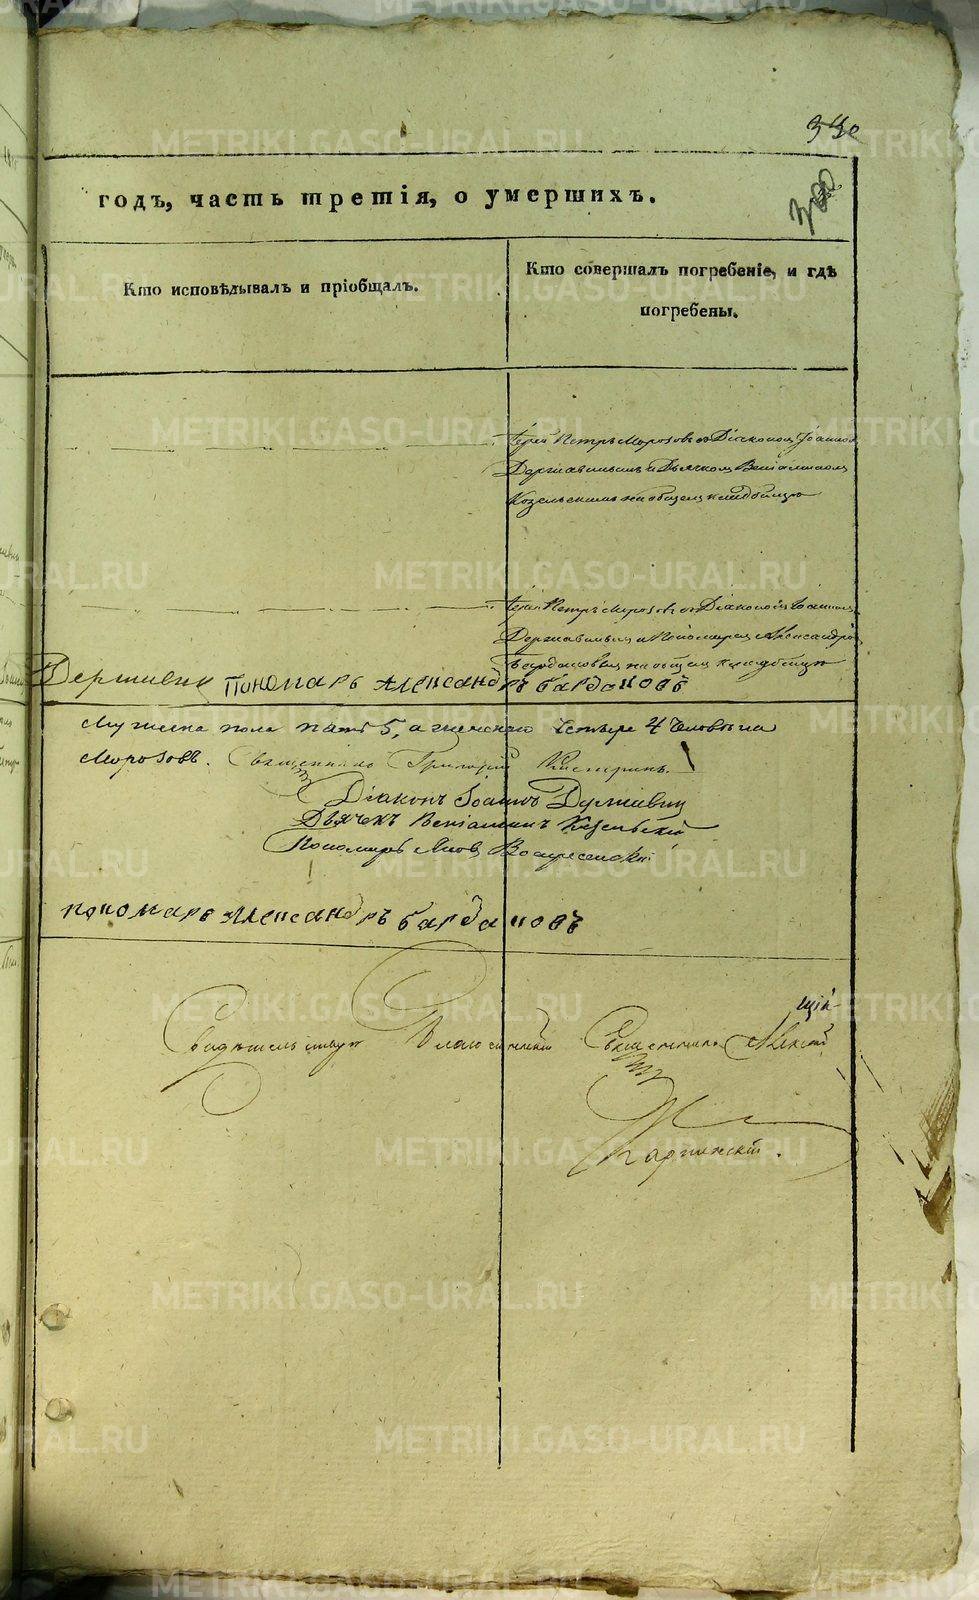 330
годъ, часть третія, о умершихъ.
Кто исповѣдывалъ и пріобщалъ.
Кто совершалъ погребеніе, и гдѣ
погребены.
Іерей Петръ Морозовъ съ Діакономъ Іоанномъ
Державинымъ и Дьячкомъ Веніаминомъ
Козельскимъ на общемъ кладбищѣ
Іерей Петръ Морозовъ съ Діакономъ Іоанномъ
Державинымъ и Пономаремъ Александромъ
Бардаковымъ на общемъ кладбищѣ
Державинъ Пономарь Александръ Бардаковъ
Мужеска пола пять 5, а женскаго четыре 4 человѣка
Морозовъ. Священникъ Григорій
Діаконъ Іоаннъ Державинъ
Дьячекъ Веніаминъ Козельскій
Пономарь Яковъ Воскресенскій
пономарь Александръ Бардаковъ
Благочинный Священникъ Алексій
Карпинскій.
METRIKI.GASO-URAL.RU